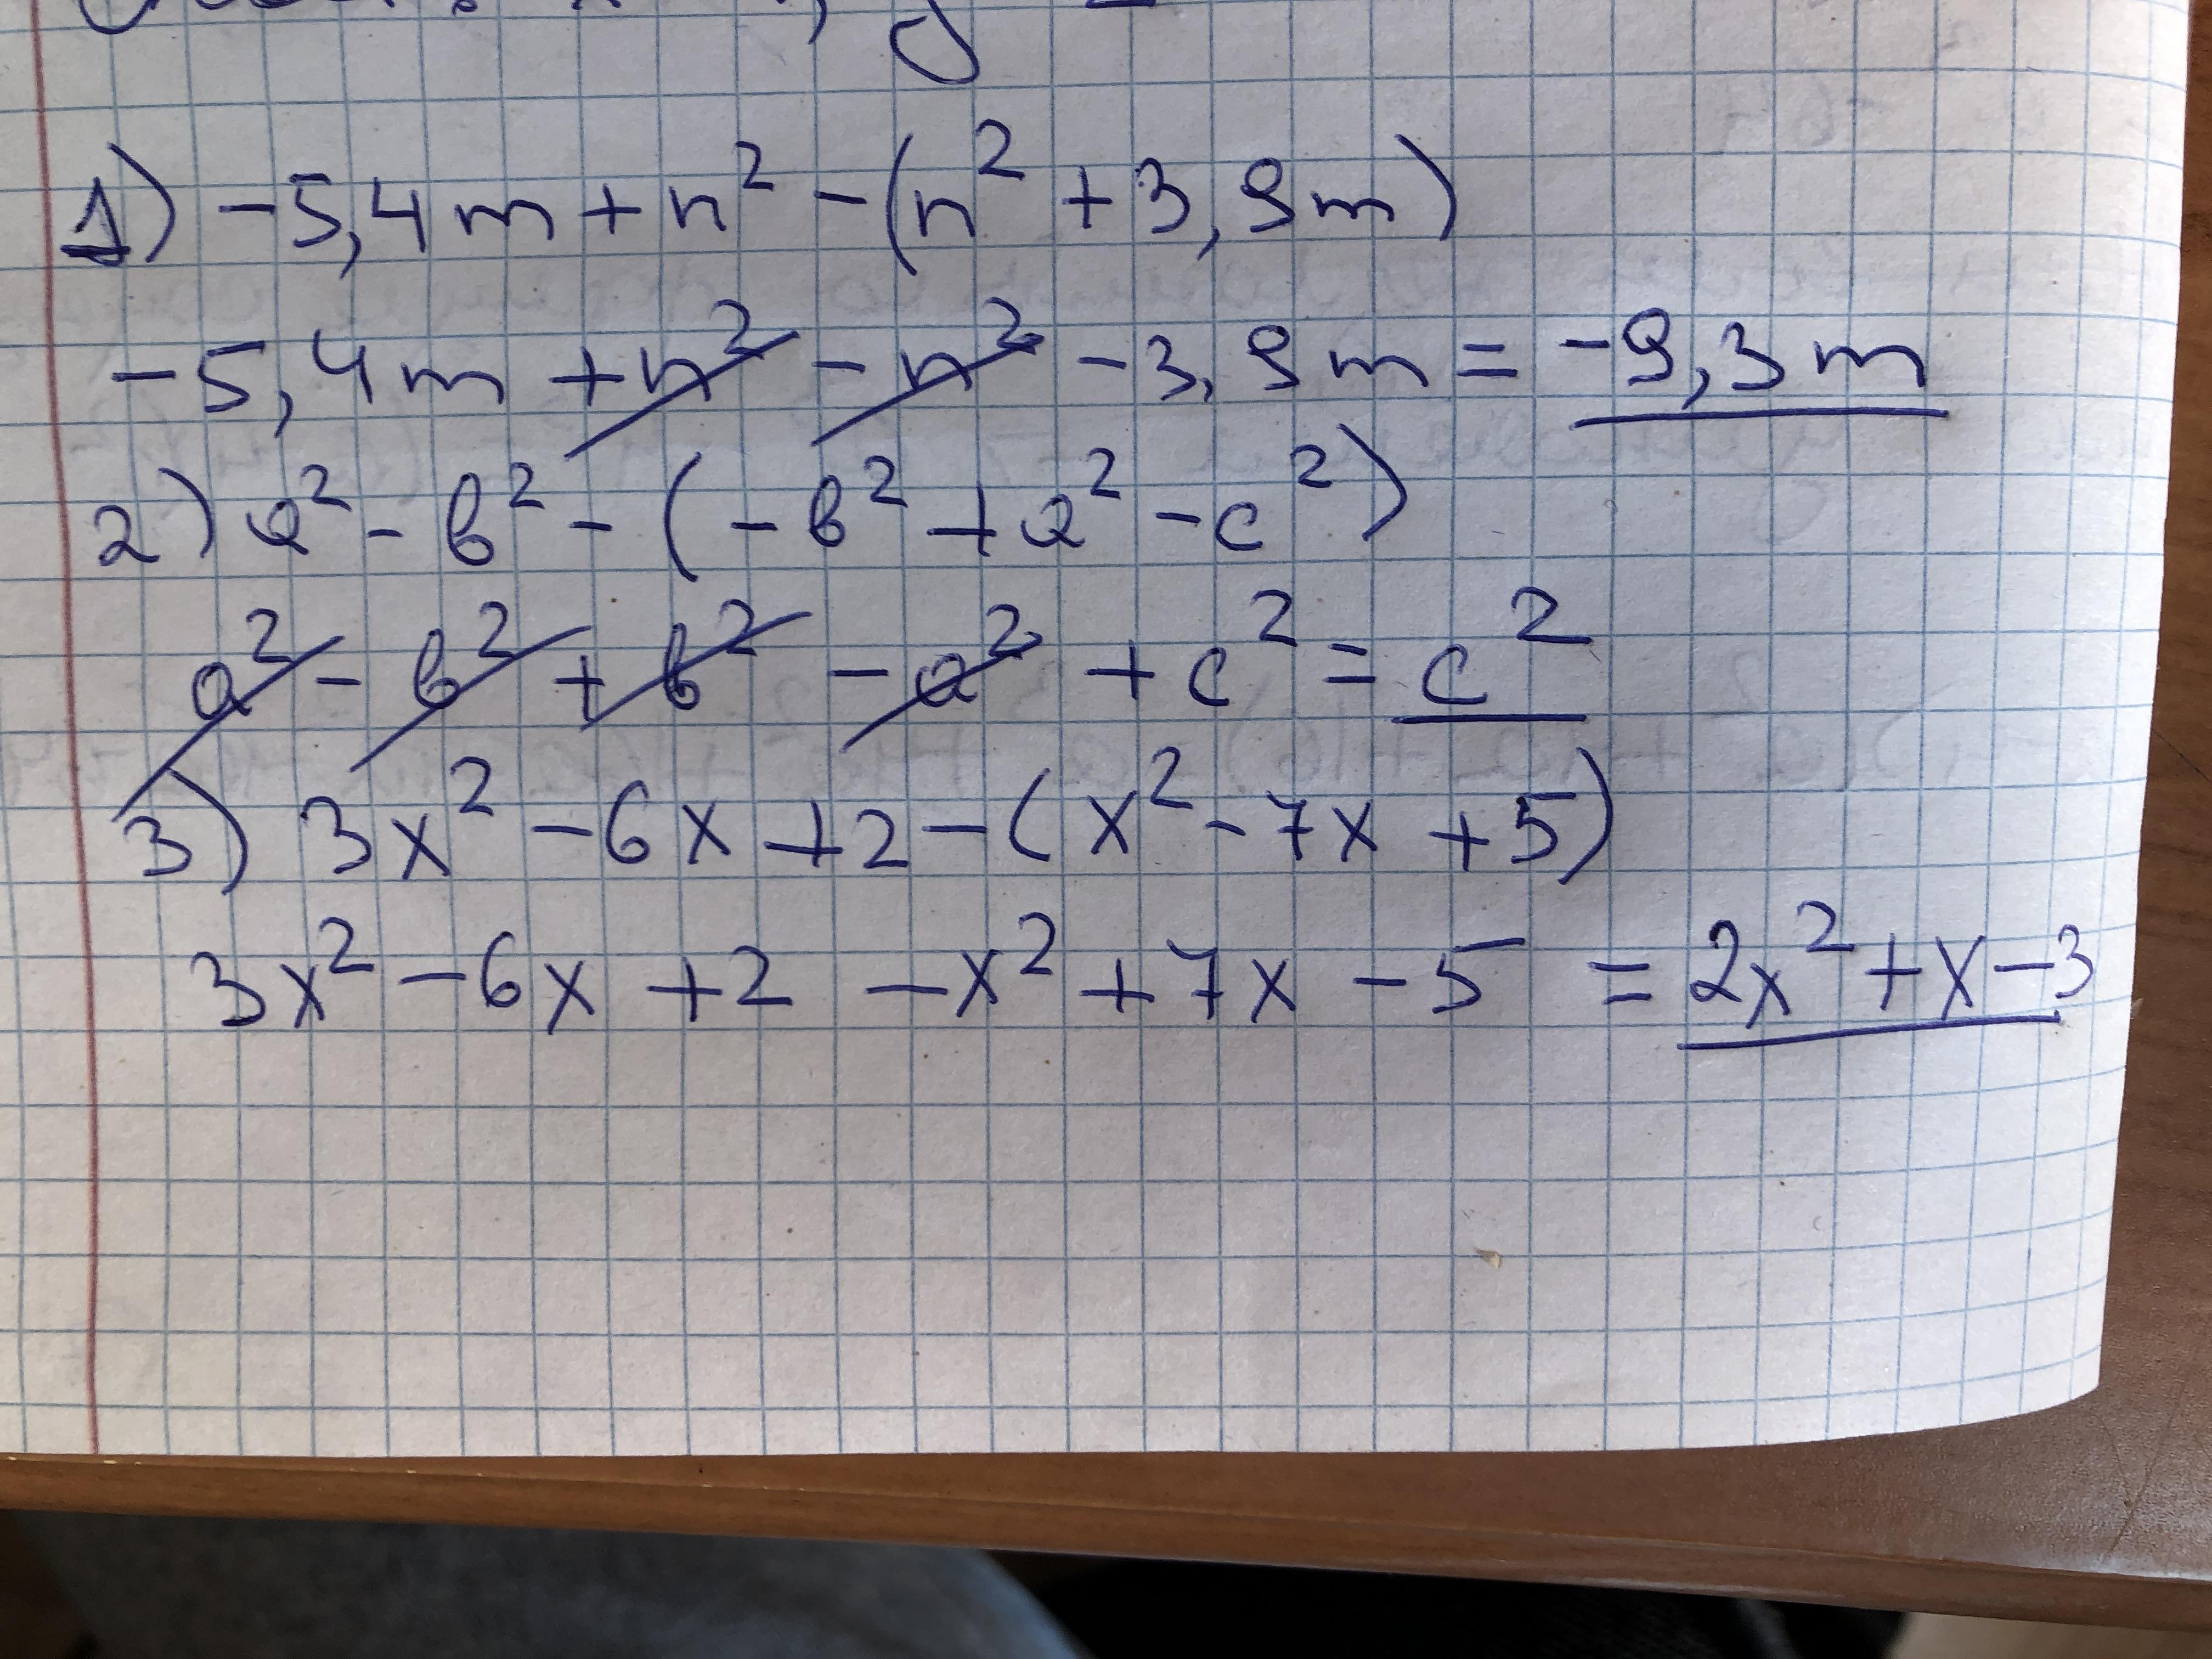 1) -5,4m + n² - (n² + 3,9m)
-5,4m + n² - n² - 3,9m = -9,3m
2) a² - b² - (-b² + a² - c²)
a² - b² + b² - a² + c² = c²
3) 3x² - 6x + 2 - (x² - 7x + 5)
3x² - 6x + 2 - x² + 7x - 5 = 2x² + x - 3